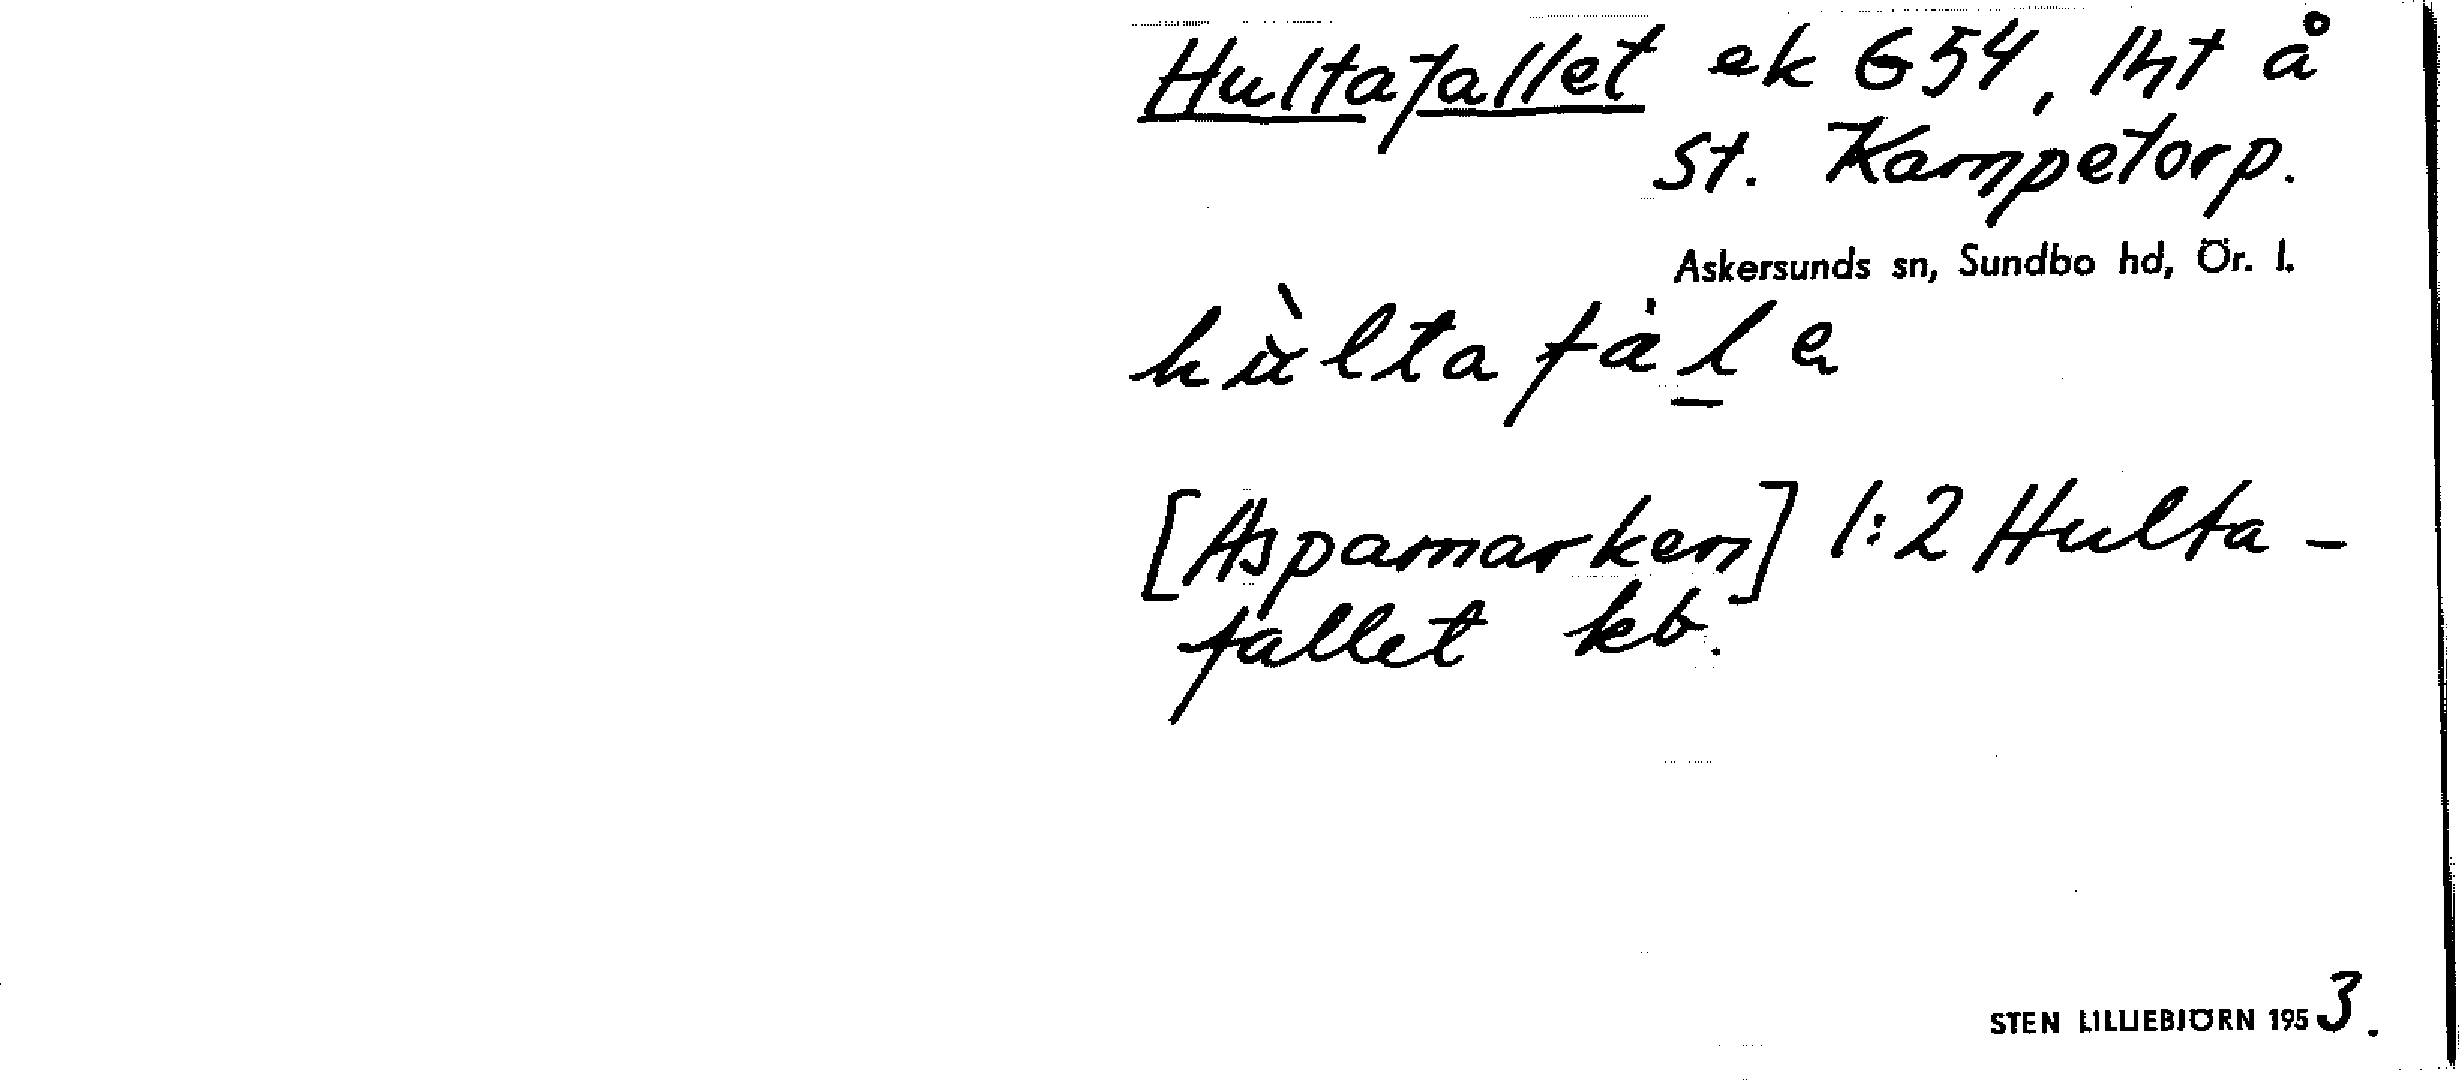 Hultafallet ek G54, lht å
St. Kampetorp.
Askersunds sn, Sundbo hd, Ör. l.
hùltafàlə
[Aspamarken] 1:2 Hulta-
fallet kb.
STEN LILLIEBJÖRN 1953.